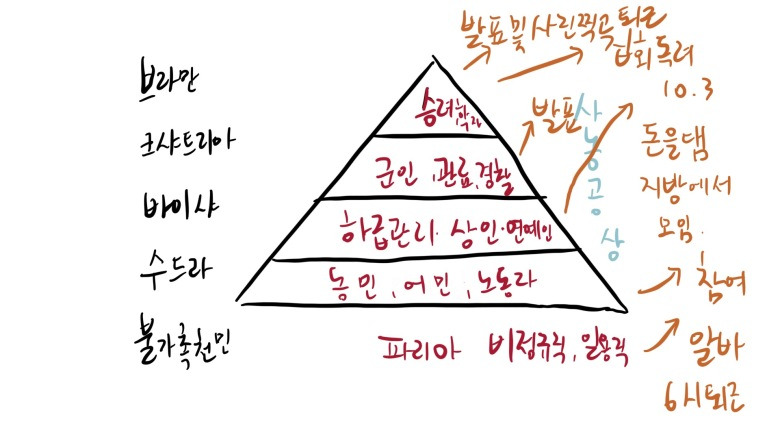 브라만
크샤트리아
바이샤
수드라
불가촉천민
승려학자
군인, 관료, 경찰
하급관리·상인·연예인
농민, 어민, 노동자
파리아 비정규직, 일용직
발표 및 사진찍고 퇴근
집회 독려
10.3
발표
사농공상
돈을 댐
지방에서
모임.
참여
알바
6시퇴근